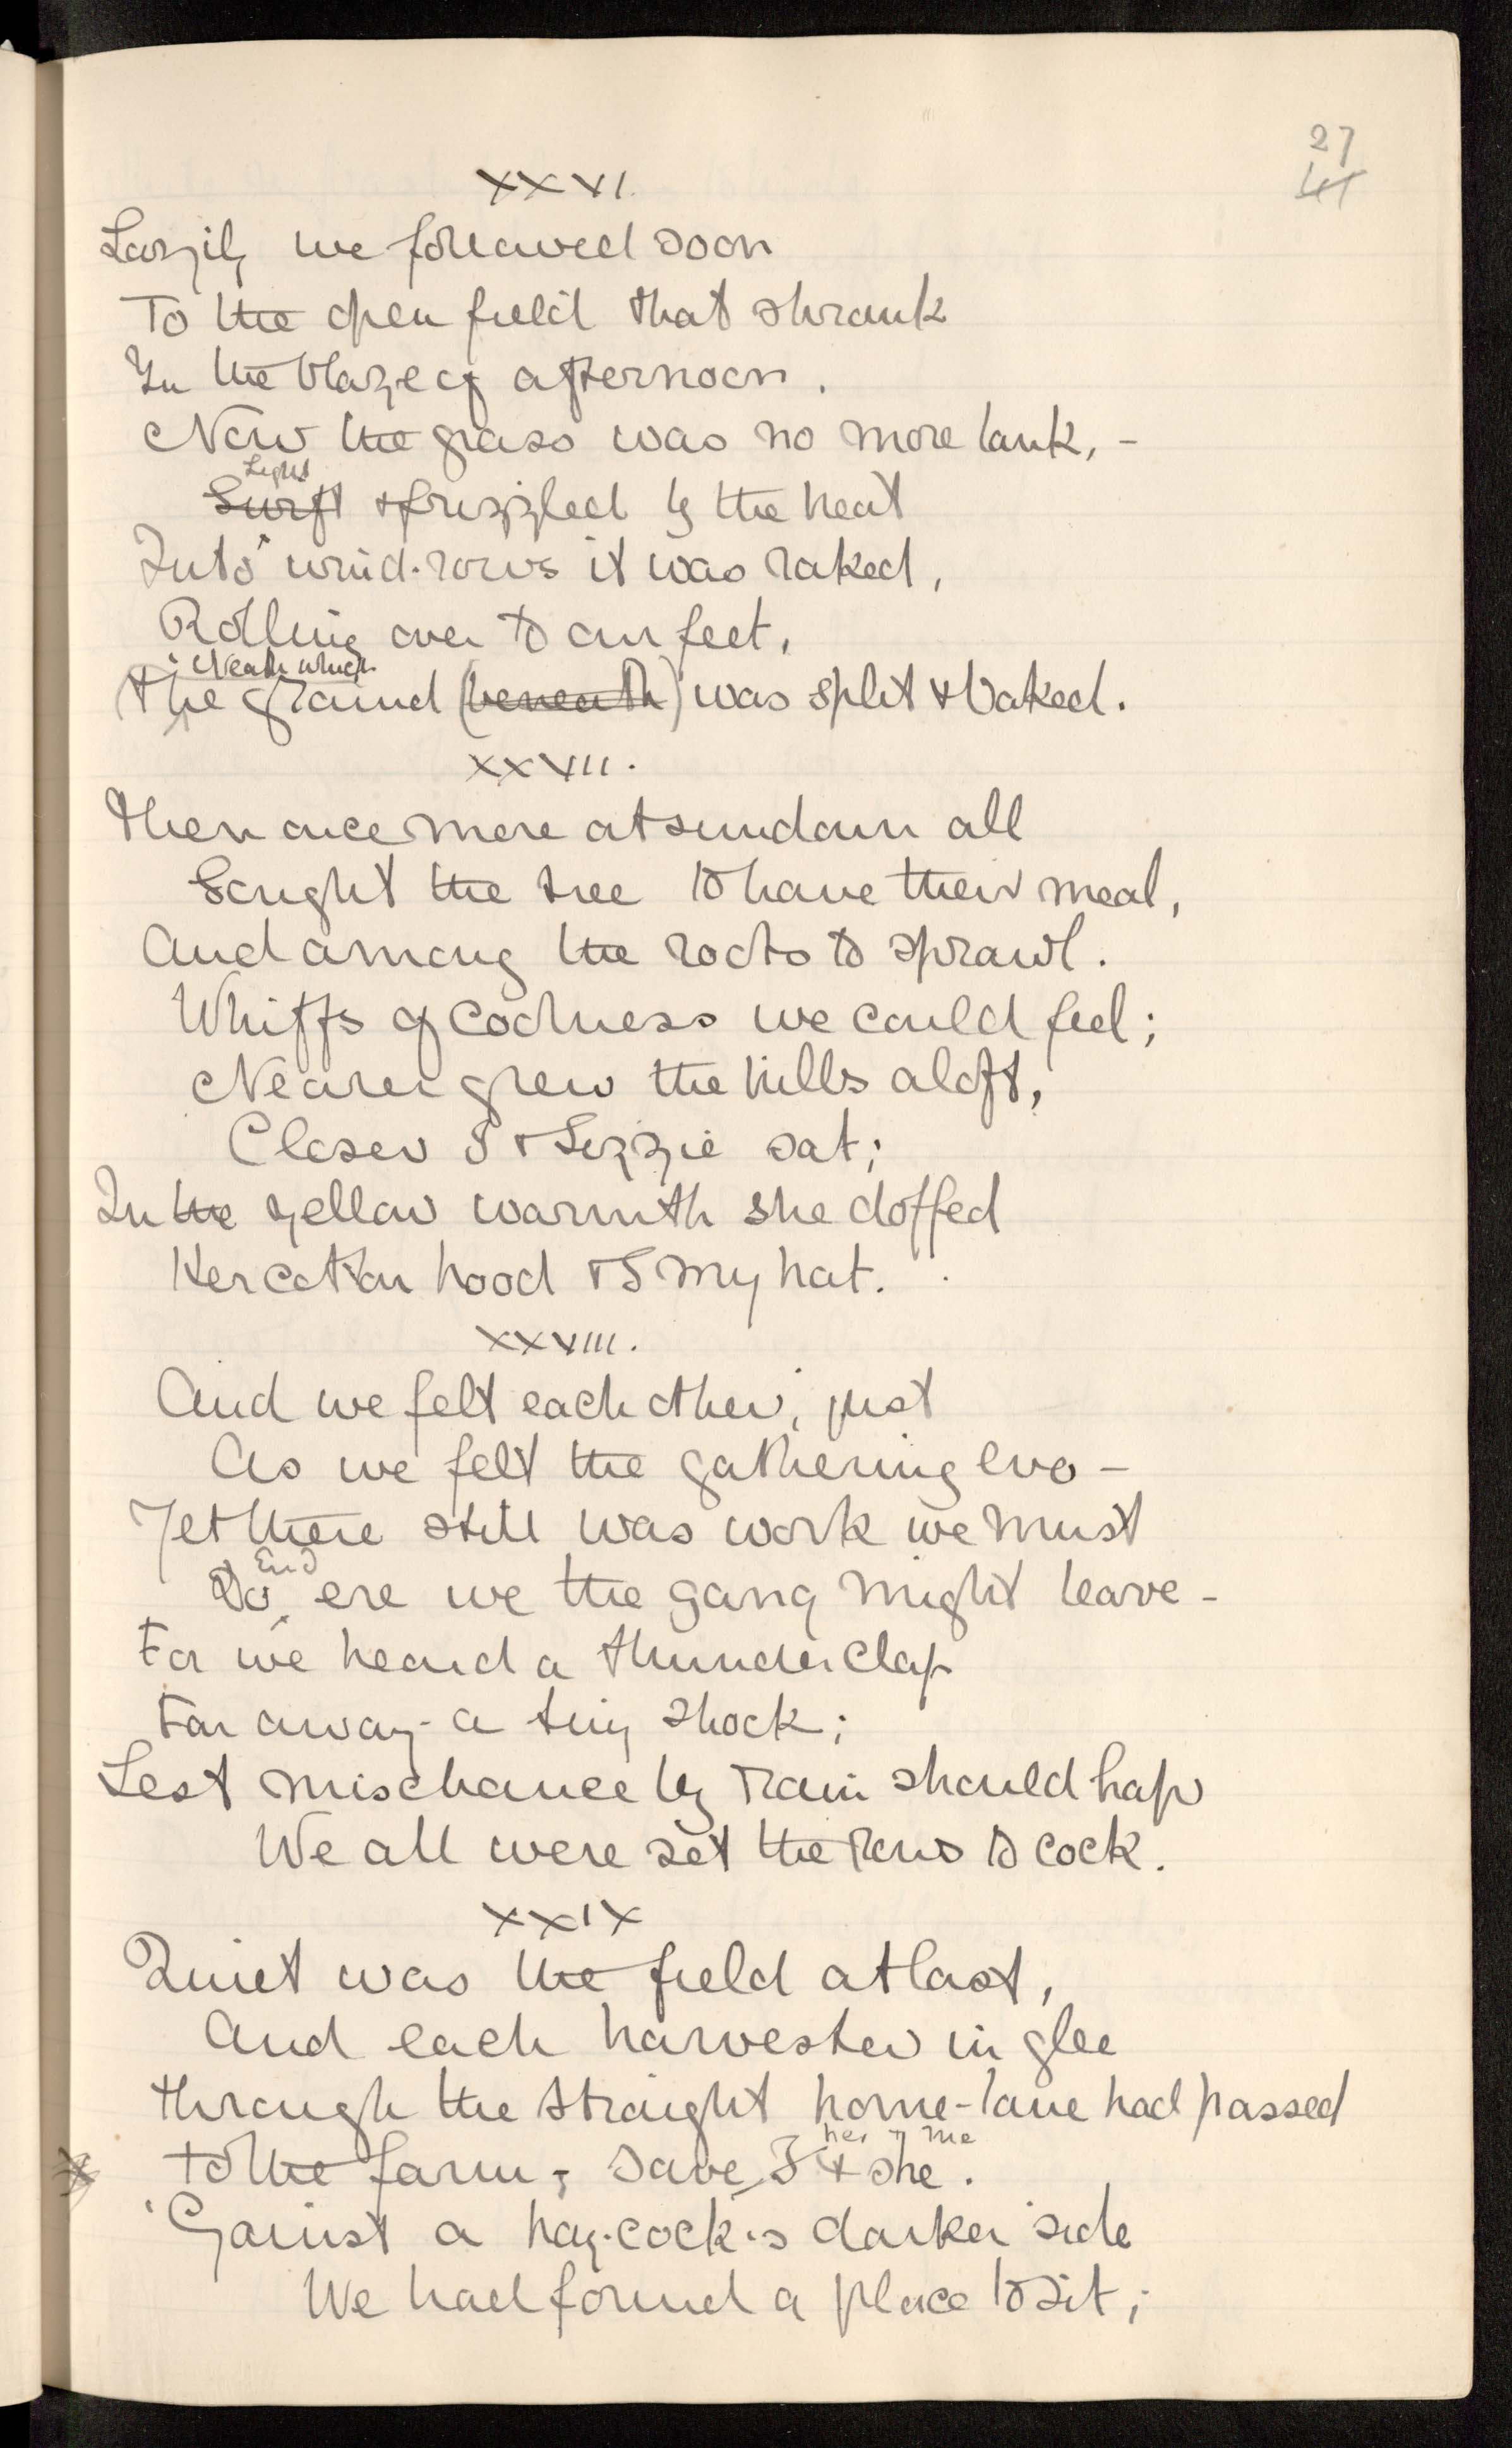 27
41
XXVI.
Lazily we followed soon
To the open field that shrank
In the blaze of afternoon.
Now the grass was no more lank, -
Light
Swift & frizzled by the heat
Into wind-rows it was raked,
Rolling over to our feet,
'Neath which
The ground (beneath) was split & baked.
XXVII.
Then once more at sundown all
Sought the tree to have their meal,
And among the roots to sprawl.
Whiffs of coolness we could feel;
Nearer grew the hills aloft,
Closer I & Lizzie sat;
In the yellow warmth she doffed
Her cotton hood & I my hat.
XXVIII.
And we felt each other, just
As we felt the gathering eve -
Yet there still was work we must
End
Do ere we the gang might leave -
For we heard a thunderclap
Far away - a tiny shock;
Lest mischance by rain should hap
We all were set the rows to cock.
XXIX
Quiet was the field at last,
And each harvester in glee
Through the straight home-lane had passed
her & me
To the farm, save I & she.
'Gainst a hay-cock's darker side
We had found a place to sit;